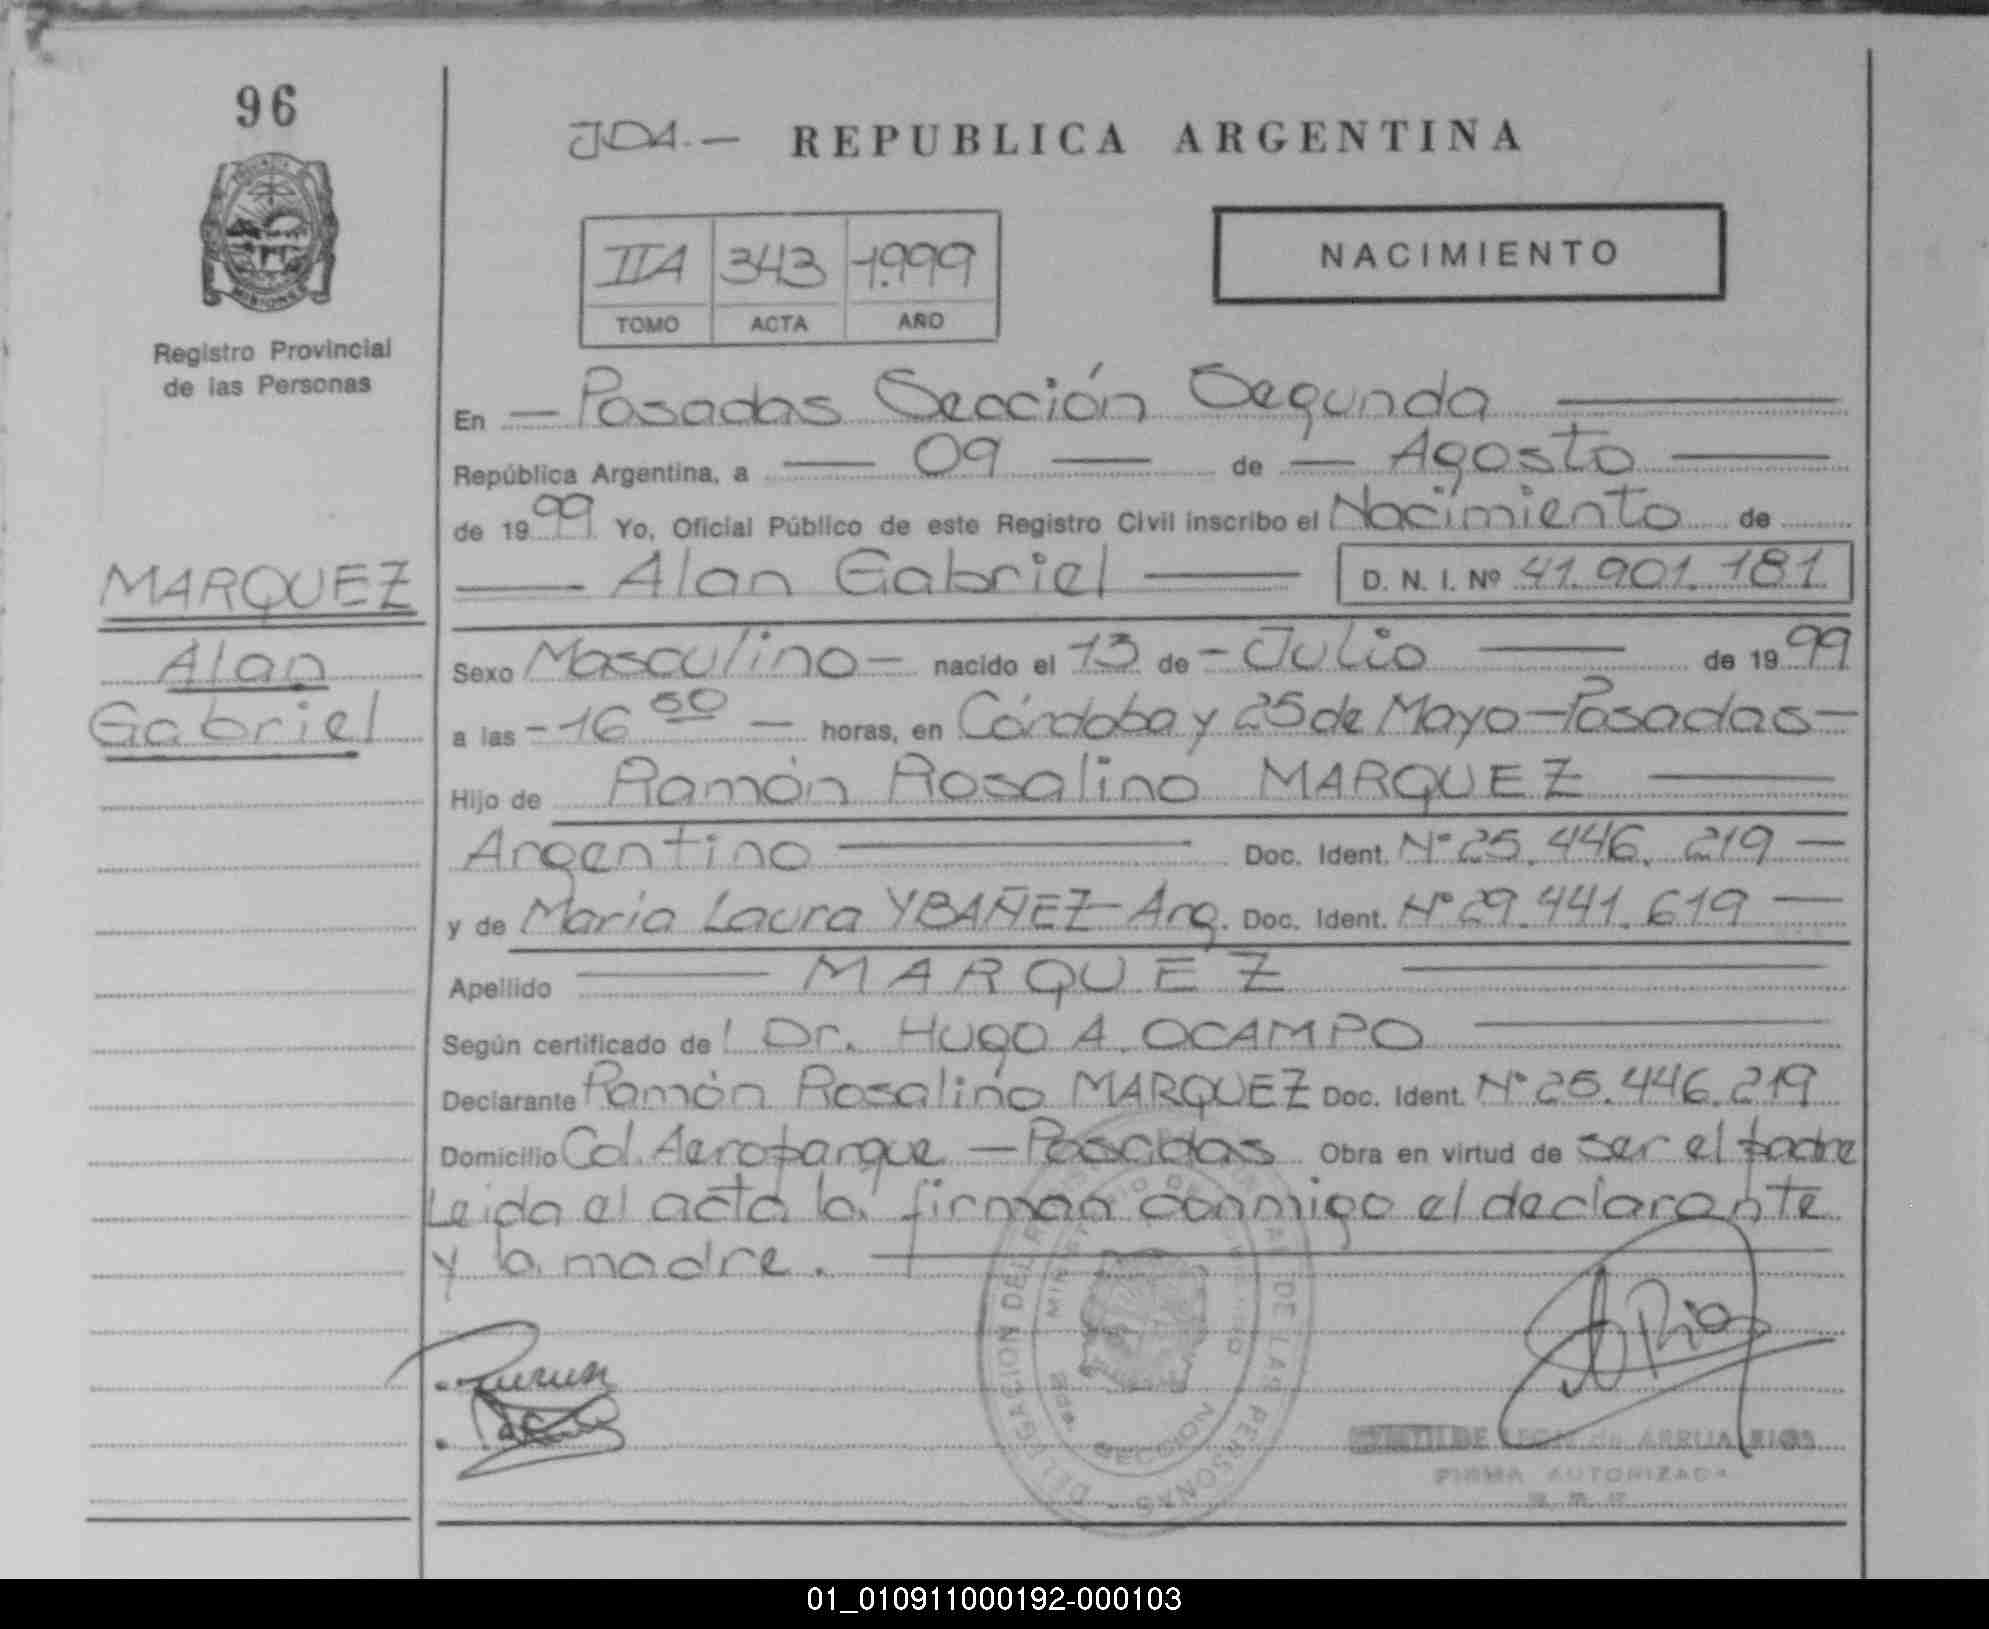 96
JDA.— REPUBLICA ARGENTINA
IIA 343 1.999
TOMO ACTA AÑO
NACIMIENTO
MISIONES
Registro Provincial
de las Personas
En — Posadas Sección Segunda —
República Argentina, a — 09 — de — Agosto —
de 1999 Yo, Oficial Público de este Registro Civil inscribo el Nacimiento de
— Alan Gabriel — D. N. I. Nº 41.901.181
MARQUEZ
Alan
Gabriel
Sexo Masculino — nacido el 13 de — Julio — de 1999
a las — 16 50 — horas, en Córdoba y 25 de Mayo — Posadas —
Hijo de Ramón Rosalino MARQUEZ —
Argentino — Doc. Ident. Nº 25.446.219 —
y de María Laura YBAÑEZ — Arg. Doc. Ident. Nº 29.441.619 —
Apellido — MARQUEZ —
Según certificado de l Dr. HUGO A. OCAMPO —
Declarante Ramón Rosalino MARQUEZ Doc. Ident. Nº 25.446.219
Domicilio Col. Aeroparque — Posadas Obra en virtud de ser el padre
Leida el acta la firman conmigo el declarante
y la madre. —
DELEGACION DEL REGISTRO DE LAS PERSONAS
MINISTERIO DE GOBIERNO
SECCION
A Rios
LEON de ARRUA RIOS
FIRMA AUTORIZADA
01_010911000192-000103